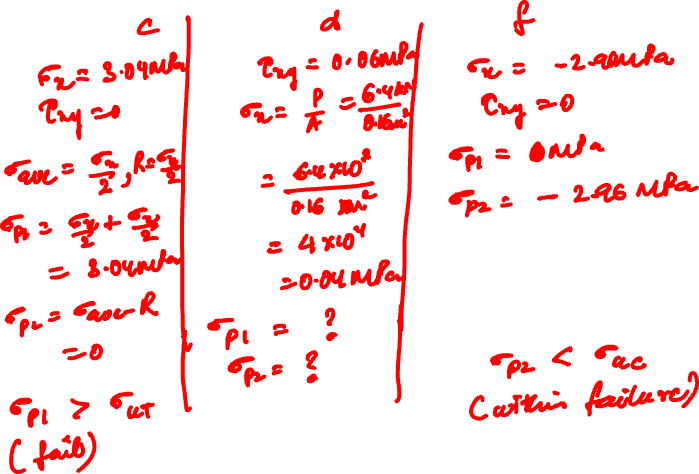 c
σx = 3.04MPa
τxy = 0
σave = σx/2, R = σx/2
σp1 = σx/2 + σx/2
= 3.04MPa
σp2 = σave - R
= 0
σp1 > σut
(fails)
d
τxy = 0.06MPa
σx = P/A = 6.4kN/0.16m²
= 6.4×10³/0.16 m²
= 4×10⁴
= 0.04MPa
σp1 = ?
σp2 = ?
f
σx = -2.96MPa
τxy = 0
σp1 = 0MPa
σp2 = - 2.96 MPa
σp2 < σuc
(within failure)